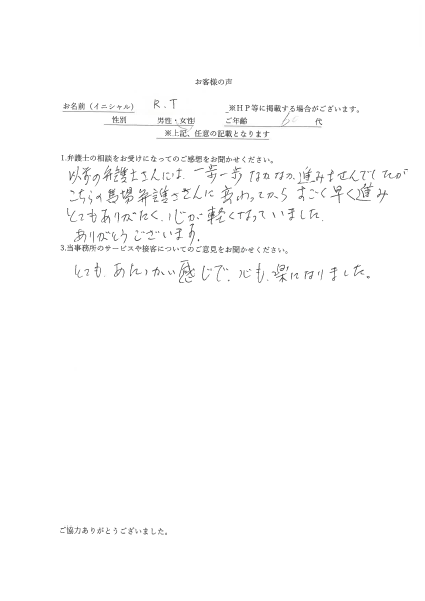 お客様の声
お名前（イニシャル） R.T ※HP等に掲載する場合がございます。
性別 男性・女性 ご年齢 60 代
※上記、任意の記載となります
1.弁護士の相談をお受けになってのご感想をお聞かせください。
以前の弁護士さんには、一歩一歩なかなか進みませんでしたが
こちらの馬場弁護士さんに変わってから すごく早く進み
とてもありがたく、心が軽くなっていました。
ありがとうございます。
3.当事務所のサービスや接客についてのご意見をお聞かせください。
とても、あたたかい感じで、心も、楽になりました。
ご協力ありがとうございました。